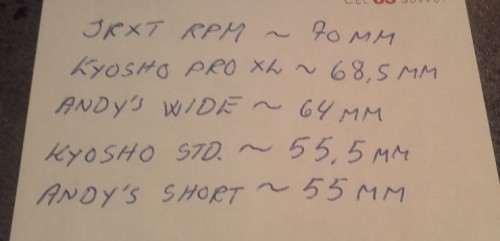 JRXT RPM ~ 70 MM
KYOSHO PRO XL ~ 68,5 MM
ANDY'S WIDE ~ 64 MM
KYOSHO STD. ~ 55,5 MM
ANDY'S SHORT ~ 55 MM